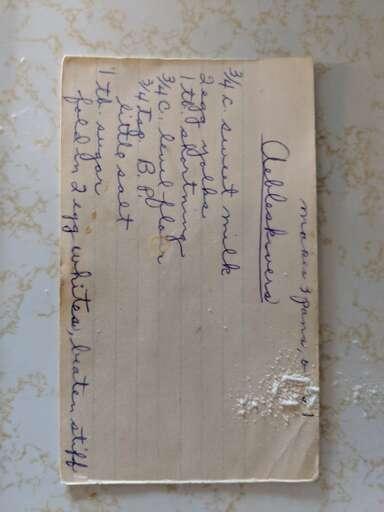 makes 3 pans,
Aebleskivers
3/4 c. sweet milk
2 egg yolks
1 tb. shortning
3/4 c. level flour
3/4 tsp. B. P.
little salt
1 tb. sugar
fold in 2 egg whites, beaten stiff